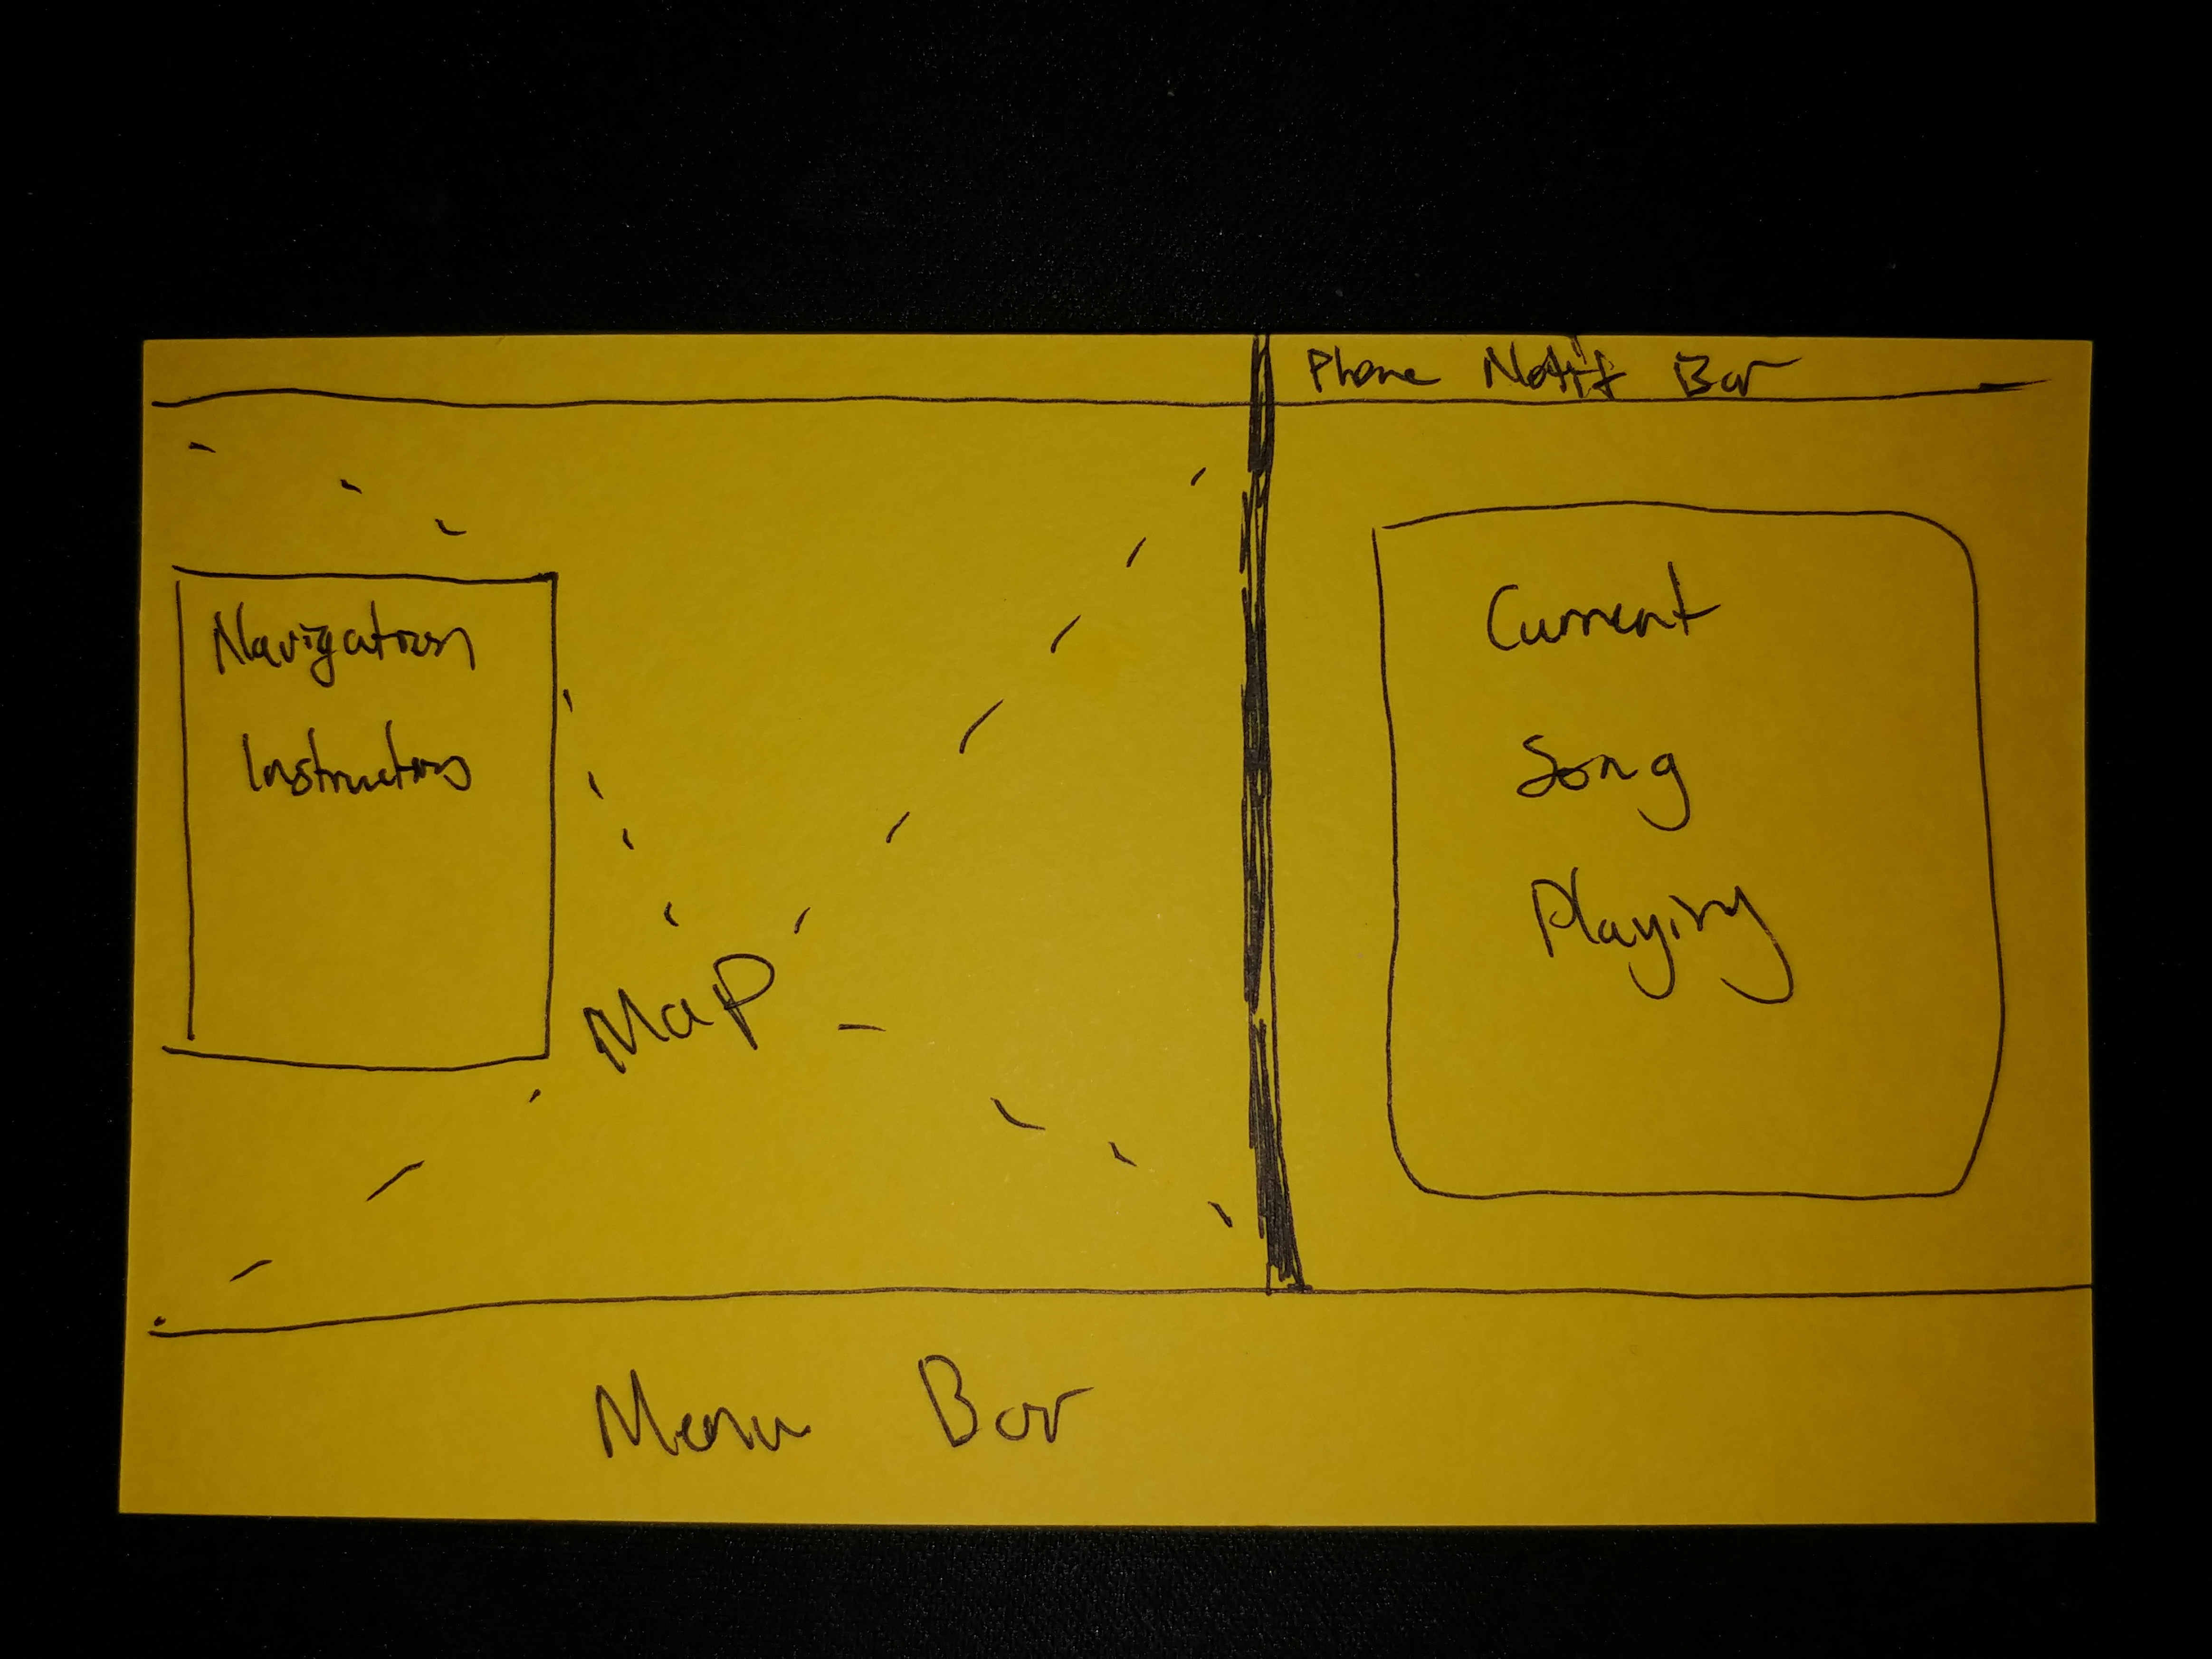 Phone Notif Bar
Navigation
Instructions
Map
Current
Song
Playing
Menu Bar